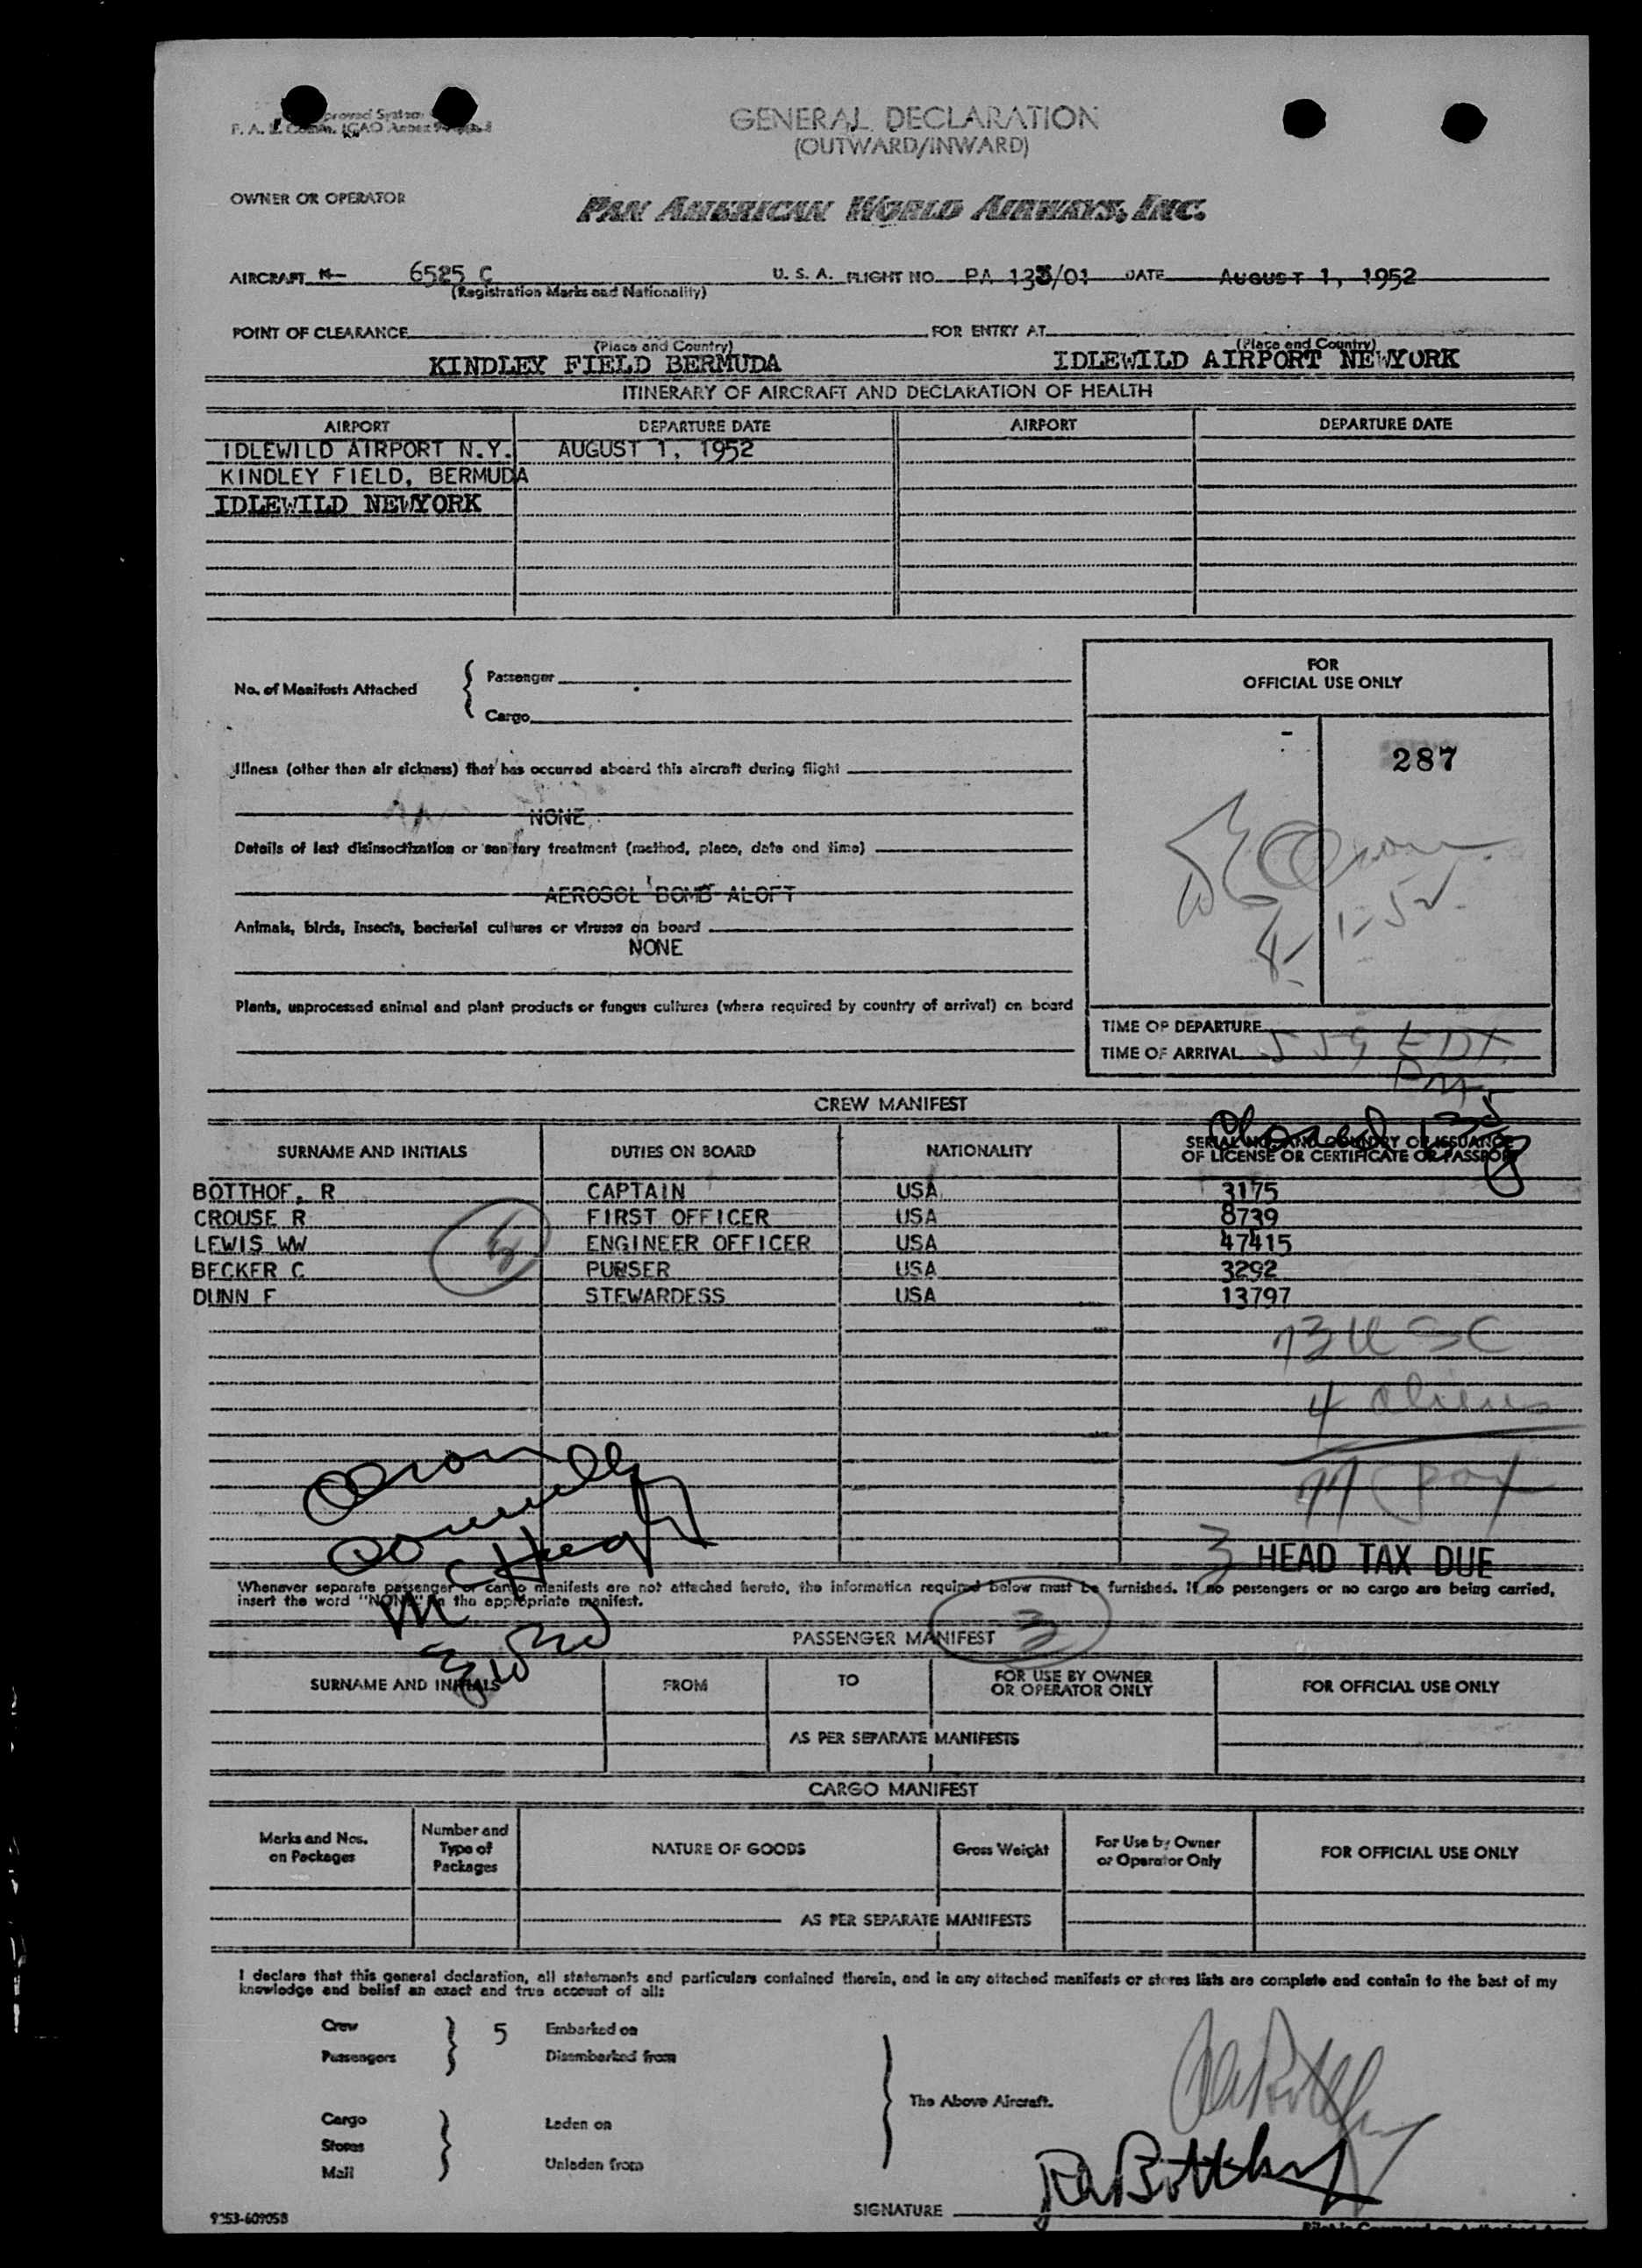 GENERAL DECLARATION
(OUTWARD/INWARD)
OWNER OR OPERATOR
PAN AMERICAN WORLD AIRWAYS, INC.
AIRCRAFT N- 6525 C U. S. A. FLIGHT NO. PA 133/01 DATE AUGUST 1, 1952
(Registration Marks and Nationality)
POINT OF CLEARANCE FOR ENTRY AT
(Place and Country) (Place and Country)
KINDLEY FIELD BERMUDA IDLEWILD AIRPORT NEWYORK
ITINERARY OF AIRCRAFT AND DECLARATION OF HEALTH
AIRPORT DEPARTURE DATE AIRPORT DEPARTURE DATE
IDLEWILD AIRPORT N.Y. AUGUST 1, 1952
KINDLEY FIELD, BERMUDA
IDLEWILD NEWYORK
No. of Manifests Attached
Passenger
Cargo
FOR
OFFICIAL USE ONLY
287
Illness (other than air sickness) that has occurred aboard this aircraft during flight
NONE
Details of last disinsectization or sanitary treatment (method, place, date and time)
AEROSOL BOMB ALOFT
Animals, birds, insects, bacterial cultures or viruses on board
NONE
8-1-52
Plants, unprocessed animal and plant products or fungus cultures (where required by country of arrival) on board
TIME OF DEPARTURE
TIME OF ARRIVAL 559 EDT
PM
CREW MANIFEST
SURNAME AND INITIALS DUTIES ON BOARD NATIONALITY SERIAL NO. AND COUNTRY OF ISSUANCE
OF LICENSE OR CERTIFICATE OR PASSPORT
BOTTHOF, R CAPTAIN USA 3175
CROUSE R FIRST OFFICER USA 8739
LEWIS WW ENGINEER OFFICER USA 47415
BECKER C PURSER USA 3292
DUNN F STEWARDESS USA 13797
73 USC
4 aliens
77 pax
3 HEAD TAX DUE
Whenever separate passenger or cargo manifests are not attached hereto, the information required below must be furnished. If no passengers or no cargo are being carried,
insert the word "NONE" in the appropriate manifest.
PASSENGER MANIFEST
3
SURNAME AND INITIALS FROM TO FOR USE BY OWNER
OR OPERATOR ONLY FOR OFFICIAL USE ONLY
AS PER SEPARATE MANIFESTS
CARGO MANIFEST
Marks and Nos.
on Packages Number and
Type of
Packages NATURE OF GOODS Gross Weight For Use by Owner
or Operator Only FOR OFFICIAL USE ONLY
AS PER SEPARATE MANIFESTS
I declare that this general declaration, all statements and particulars contained therein, and in any attached manifests or stores lists are complete and contain to the best of my
knowledge and belief an exact and true account of all:
Crew 5 Embarked on
Passengers Disembarked from
The Above Aircraft.
Cargo Laden on
Stores
Mail Unladen from
SIGNATURE
9253-609058